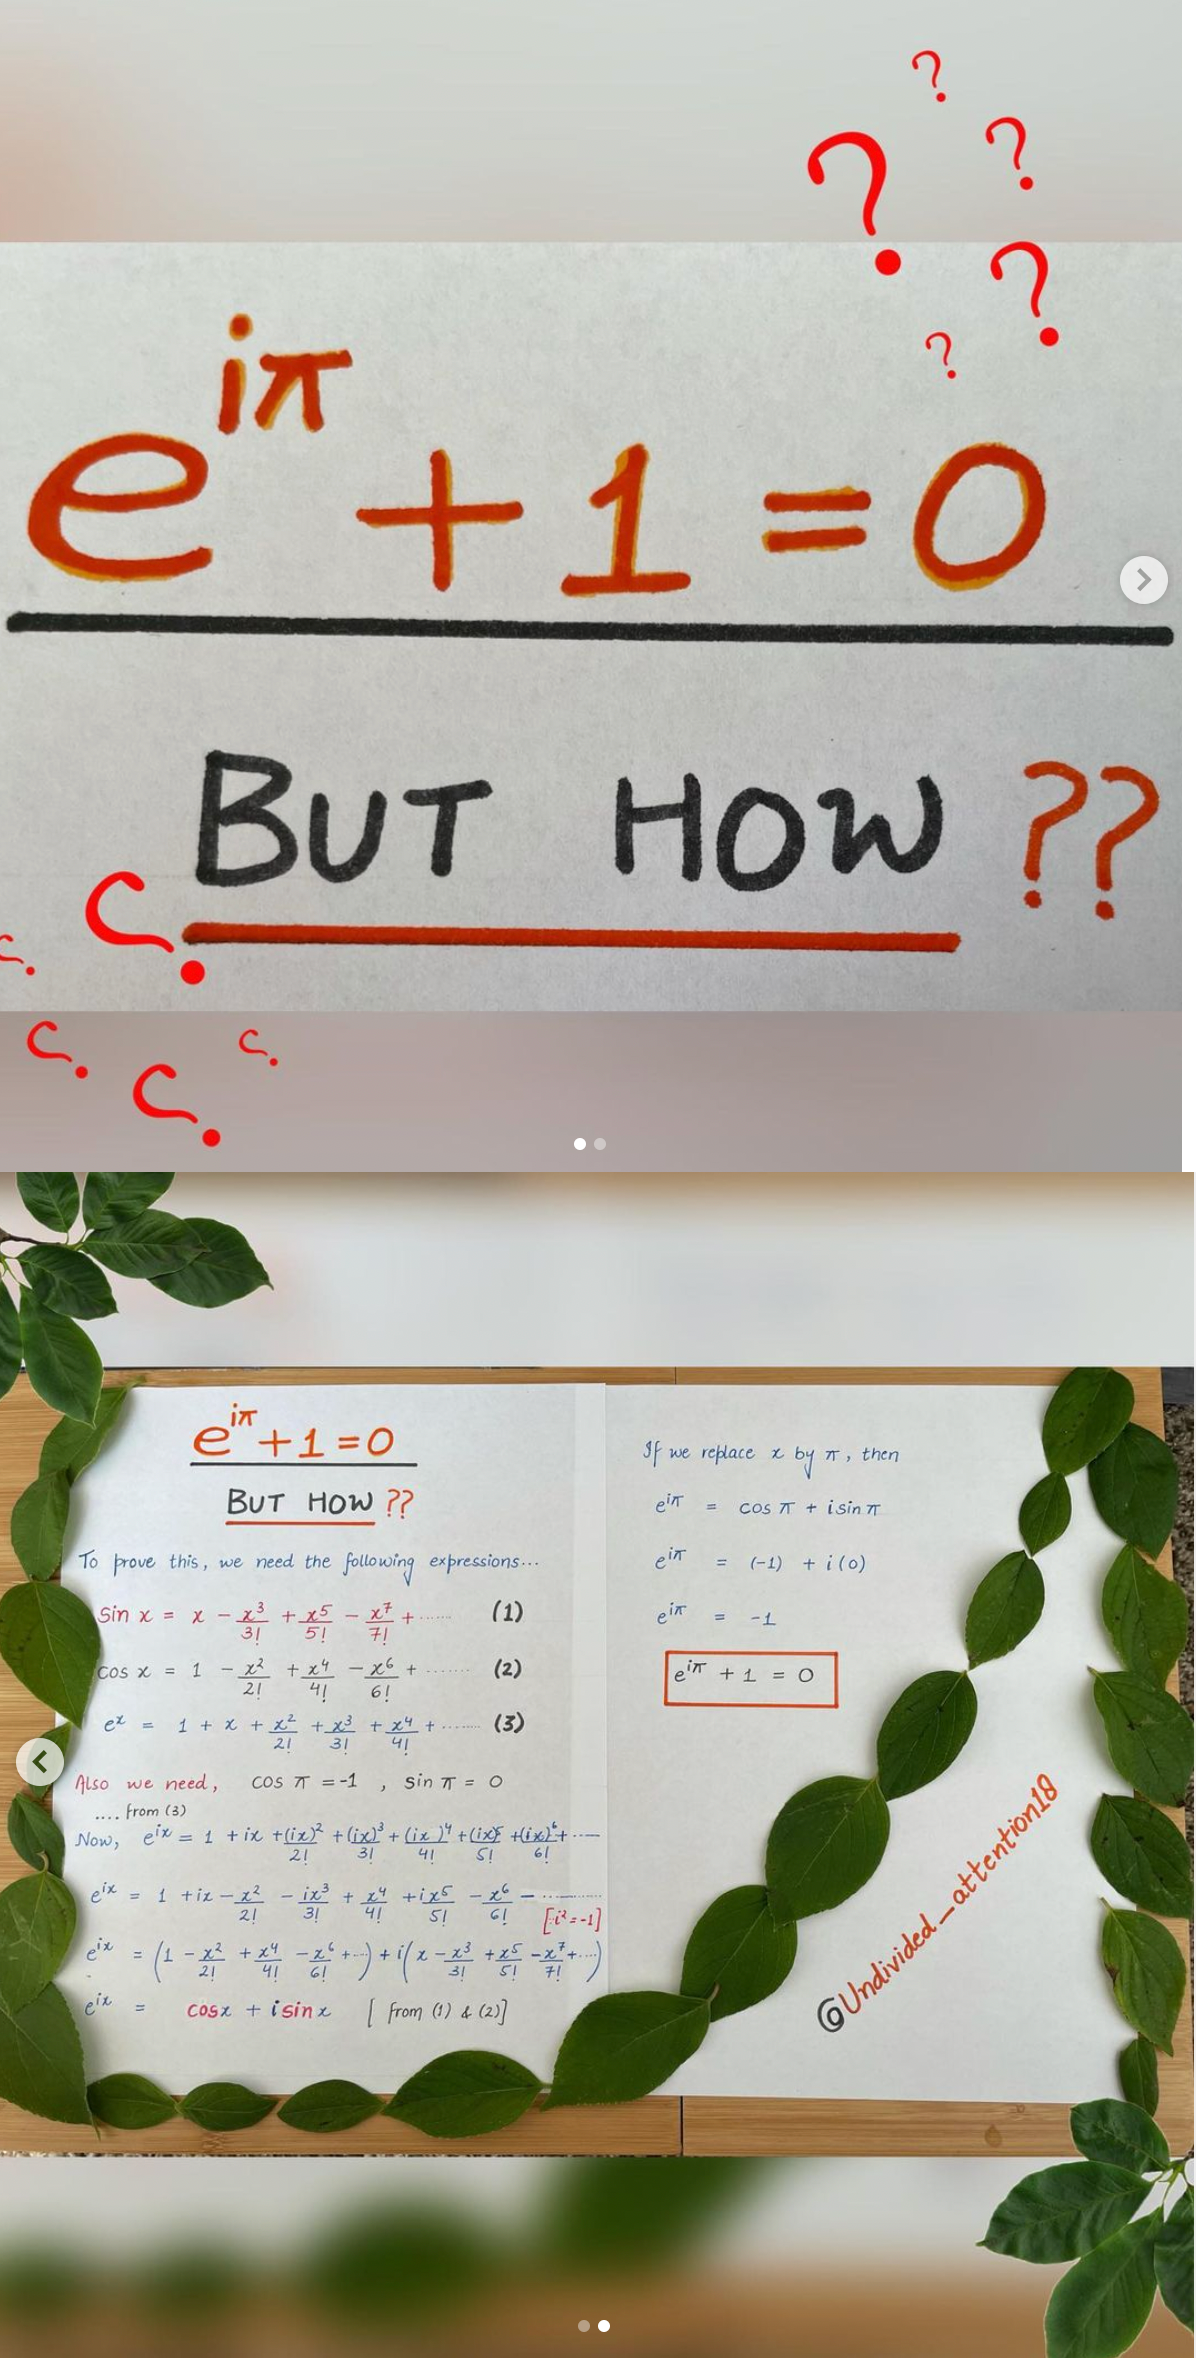 e^{iπ} + 1 = 0
BUT HOW ??
e^{iπ} + 1 = 0
BUT HOW ??
To prove this, we need the following expressions...
sin x = x - x³/3! + x⁵/5! - x⁷/7! + ...... (1)
cos x = 1 - x²/2! + x⁴/4! - x⁶/6! + ....... (2)
e^x = 1 + x + x²/2! + x³/3! + x⁴/4! + ........ (3)
Also we need, cos π = -1 , sin π = 0
.... from (3)
Now, e^{ix} = 1 + ix + (ix)²/2! + (ix)³/3! + (ix)⁴/4! + (ix)⁵/5! + (ix)⁶/6! + .....
e^{ix} = 1 + ix - x²/2! - ix³/3! + x⁴/4! + ix⁵/5! - x⁶/6! - ............
[∵ i² = -1]
e^{ix} = (1 - x²/2! + x⁴/4! - x⁶/6! + ...) + i(x - x³/3! + x⁵/5! - x⁷/7! + ....)
e^{ix} = cosx + i sin x [ from (1) & (2)]
If we replace x by π, then
e^{iπ} = cos π + i sin π
e^{iπ} = (-1) + i (0)
e^{iπ} = -1
e^{iπ} + 1 = 0
@Undivided_attention18